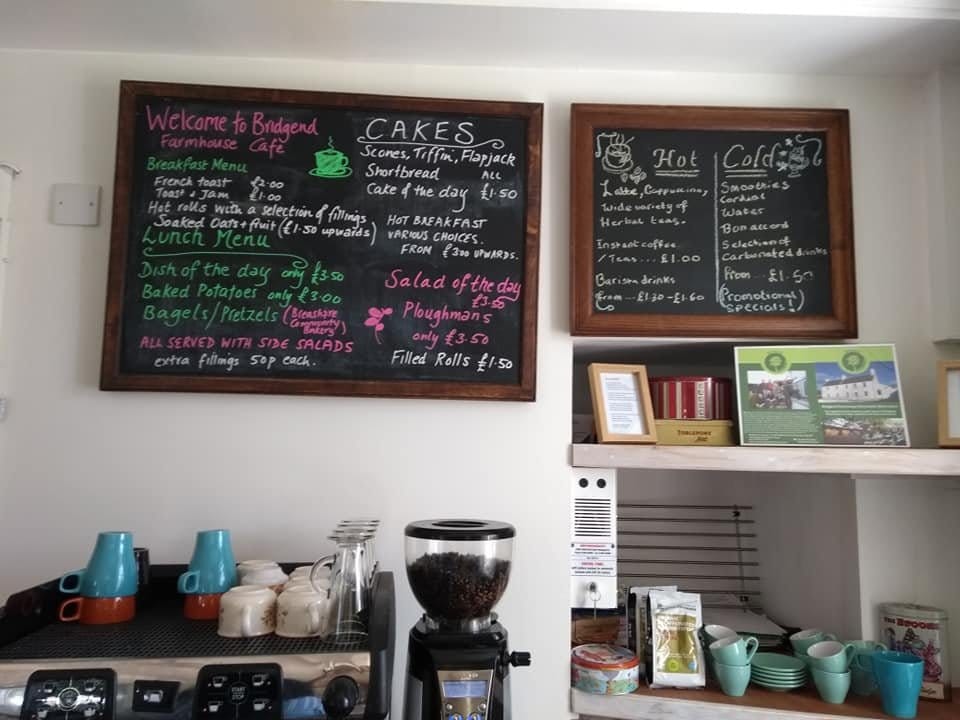 Welcome to Bridgend
Farmhouse Café
Breakfast Menu
French toast £2.00
Toast & Jam £1.00
Hot rolls with a selection of fillings
Soaked Oats + fruit (£1.50 upwards)
Lunch Menu
Dish of the day only £3.50
Baked Potatoes only £3.00
Bagels/Pretzels (Breadshare
Community
Bakery)
ALL SERVED WITH SIDE SALADS
extra fillings 50p each.
CAKES
Scones, Tiffin, Flapjack
Shortbread ALL
Cake of the day £1.50
HOT BREAKFAST
VARIOUS CHOICES.
FROM £3.00 UPWARDS.
Salad of the day
£3.50
Ploughmans
only £3.50
Filled Rolls £1.50
Hot
Latte, Cappuccino,
Wide variety of
Herbal teas.
Instant coffee
/Teas... £1.00
Barista drinks
From... £1.30-£1.60
Cold
Smoothies
Cordial
Water
Bon accord
Selection of
Carbonated drinks
From... £1.50
(Promotional
Specials!)
TOBLERONE
START
STOP